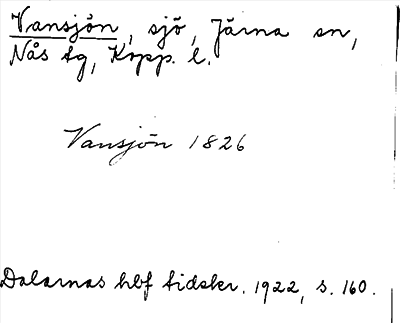 Vansjön, sjö, Järna sn,
Nås tg, Kopp. l.
Vansjön 1826
Dalarnas hbf tidskr. 1922, s. 160.